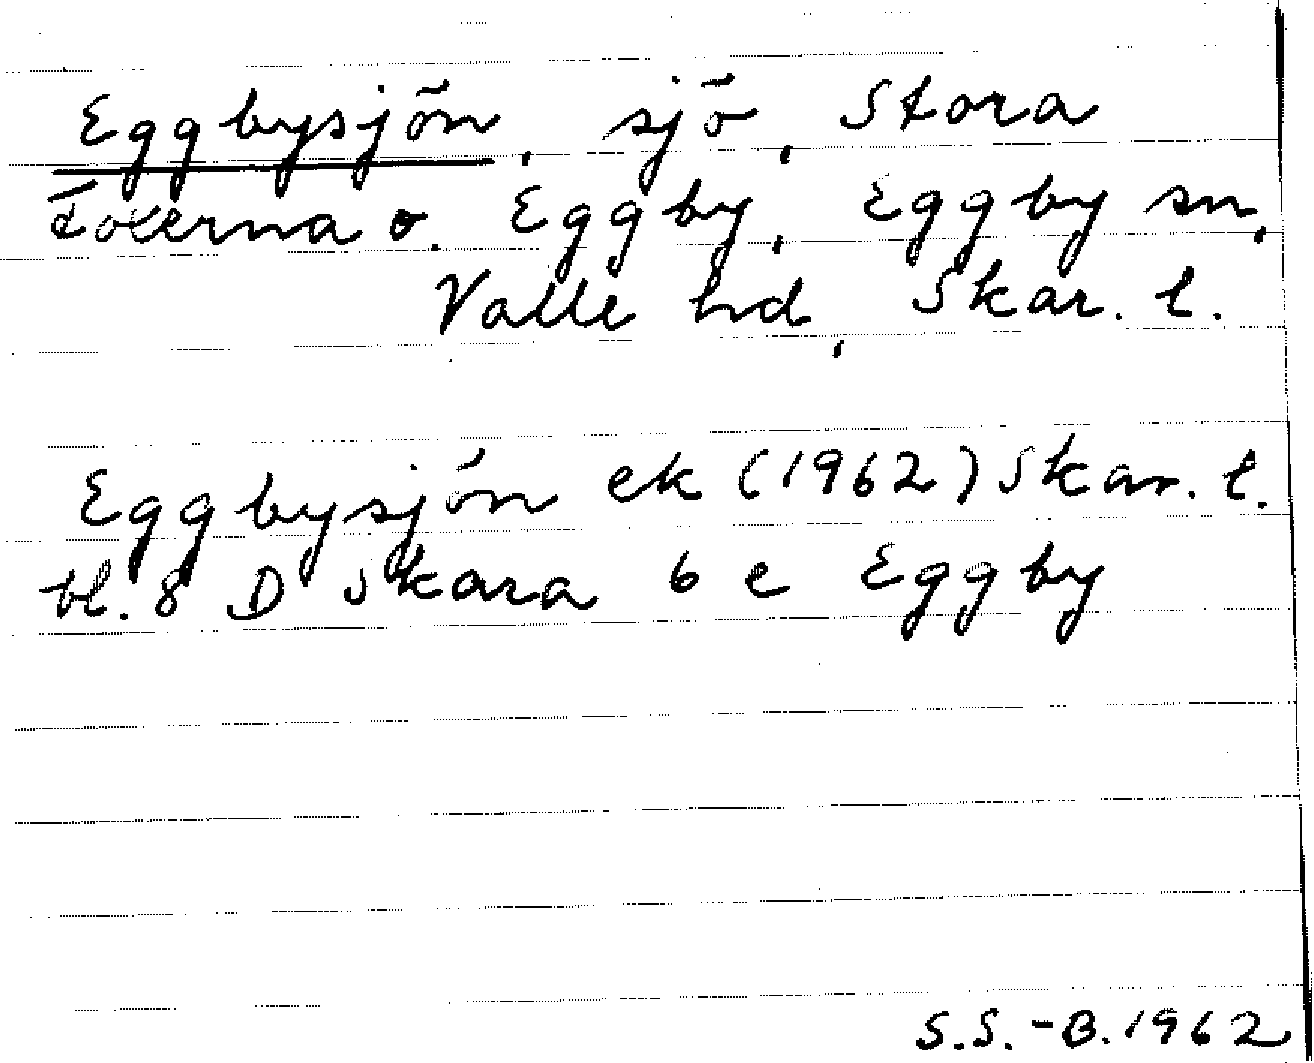 Eggbysjön, sjö, Stora
Foxerna o. Eggby, Eggby sn,
Valle hd, Skar. l.
Eggbysjön ek (1962) Skar. l.
bl. 8 D Skara 6 e Eggby
S.S.-B. 1962